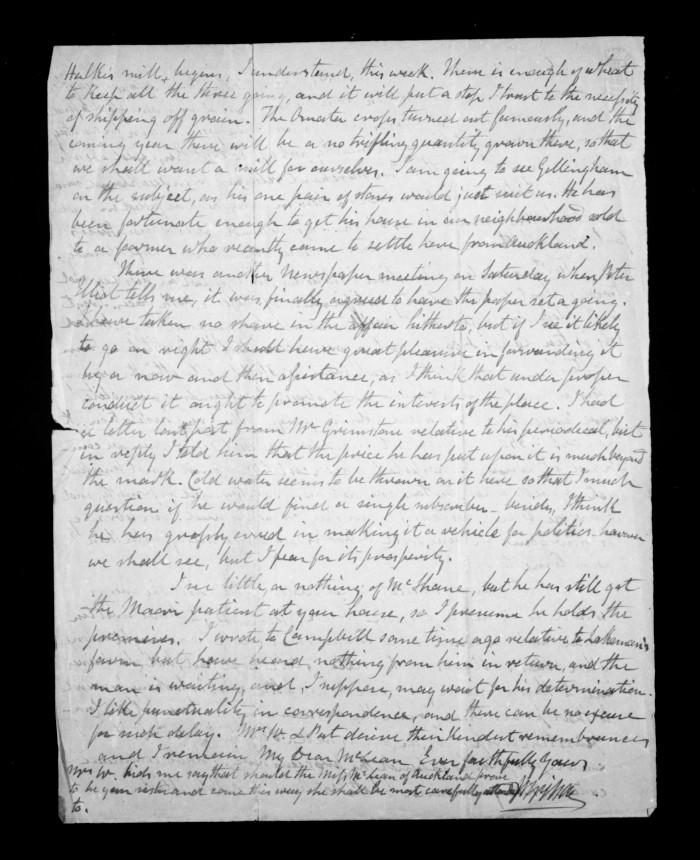 mill, begins, I understand, this week. There is enough of wheat
to keep all the three going, and it will put a stop I trust to the necessity
of shipping off grain. The crops turned out famously, and the
coming year there will be a no trifling quantity grown there, so that
we shall want a mill for ourselves. I am going to see Gillingham
on the subject, as his one pair of stones would just suit us. He has
been fortunate enough to get his house in our neighbourhood sold
to a farmer who recently came to settle here from Auckland.
There was another Newspaper meeting on Saturday when Peter
tells me, it was finally agreed to have the paper set a going.
I have taken no share in the affair hitherto, but if I see it likely
to go on right I shall have great pleasure in forwarding it
by a now and then assistance, as I think that under proper
conduct it ought to promote the interests of the place. I had
a letter last post from Mr Grimstone relative to his periodical, but
in reply I told him that the price he has put upon it is much beyond
the mark. Cold water seems to be thrown on it here so that I much
question if he would find a single subscriber - besides, I think
he has grossly erred in making it a vehicle for politics - however
we shall see, but I fear for its prosperity.
I see little or nothing of McShane, but he has still got
the Maori patient at your house, so I presume he holds the
premises. I wrote to Campbell some time ago relative to Lakeman's
farm, but have heard nothing from him in return, and the
man is waiting, and, I suppose, may wait for his determination.
I like punctuality in correspondence, and there can be no excuse
for such delay. Mrs W. & Pat desire their kindest remembrances
and I remain My Dear McLean Ever faithfully Yours
Mrs W. bids me say that should the Miss McLean of Auckland prove
to be your sister and come this way she shall be most carefully attended
to.